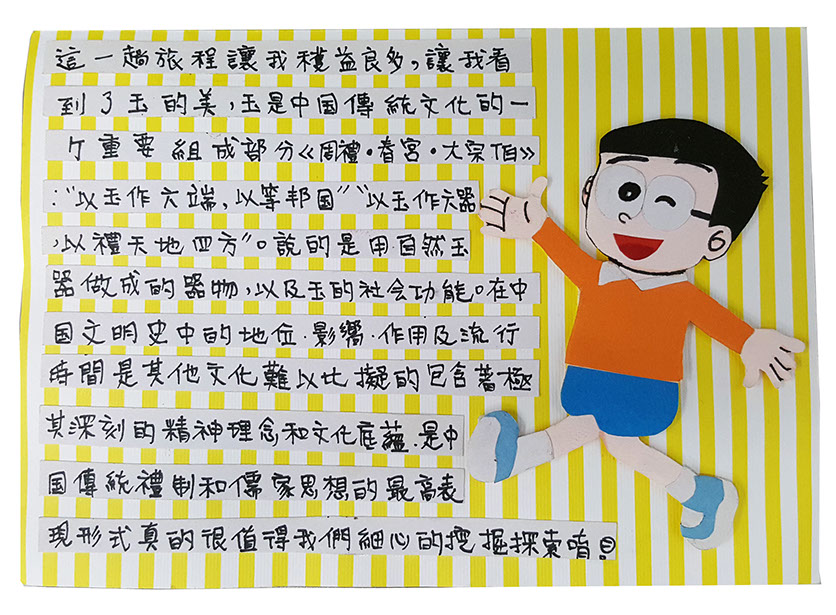 這一趟旅程讓我穫益良多,讓我看
到了玉的美,玉是中国傳統文化的一
个重要組成部分《周禮·春宮·大宗伯》
:"以玉作六端,以等邦国""以玉作六器
,以禮天地四方"。說的是用自然玉
器做成的器物,以及玉的社会功能。在中
国文明史中的地位.影嚮.作用及流行
時間是其他文化難以比擬的包含著極
其深刻的精神理念和文化底蘊.是中
国傳統禮制和儒家思想的最高表
現形式真的很值得我們細心的挖掘探索唷!